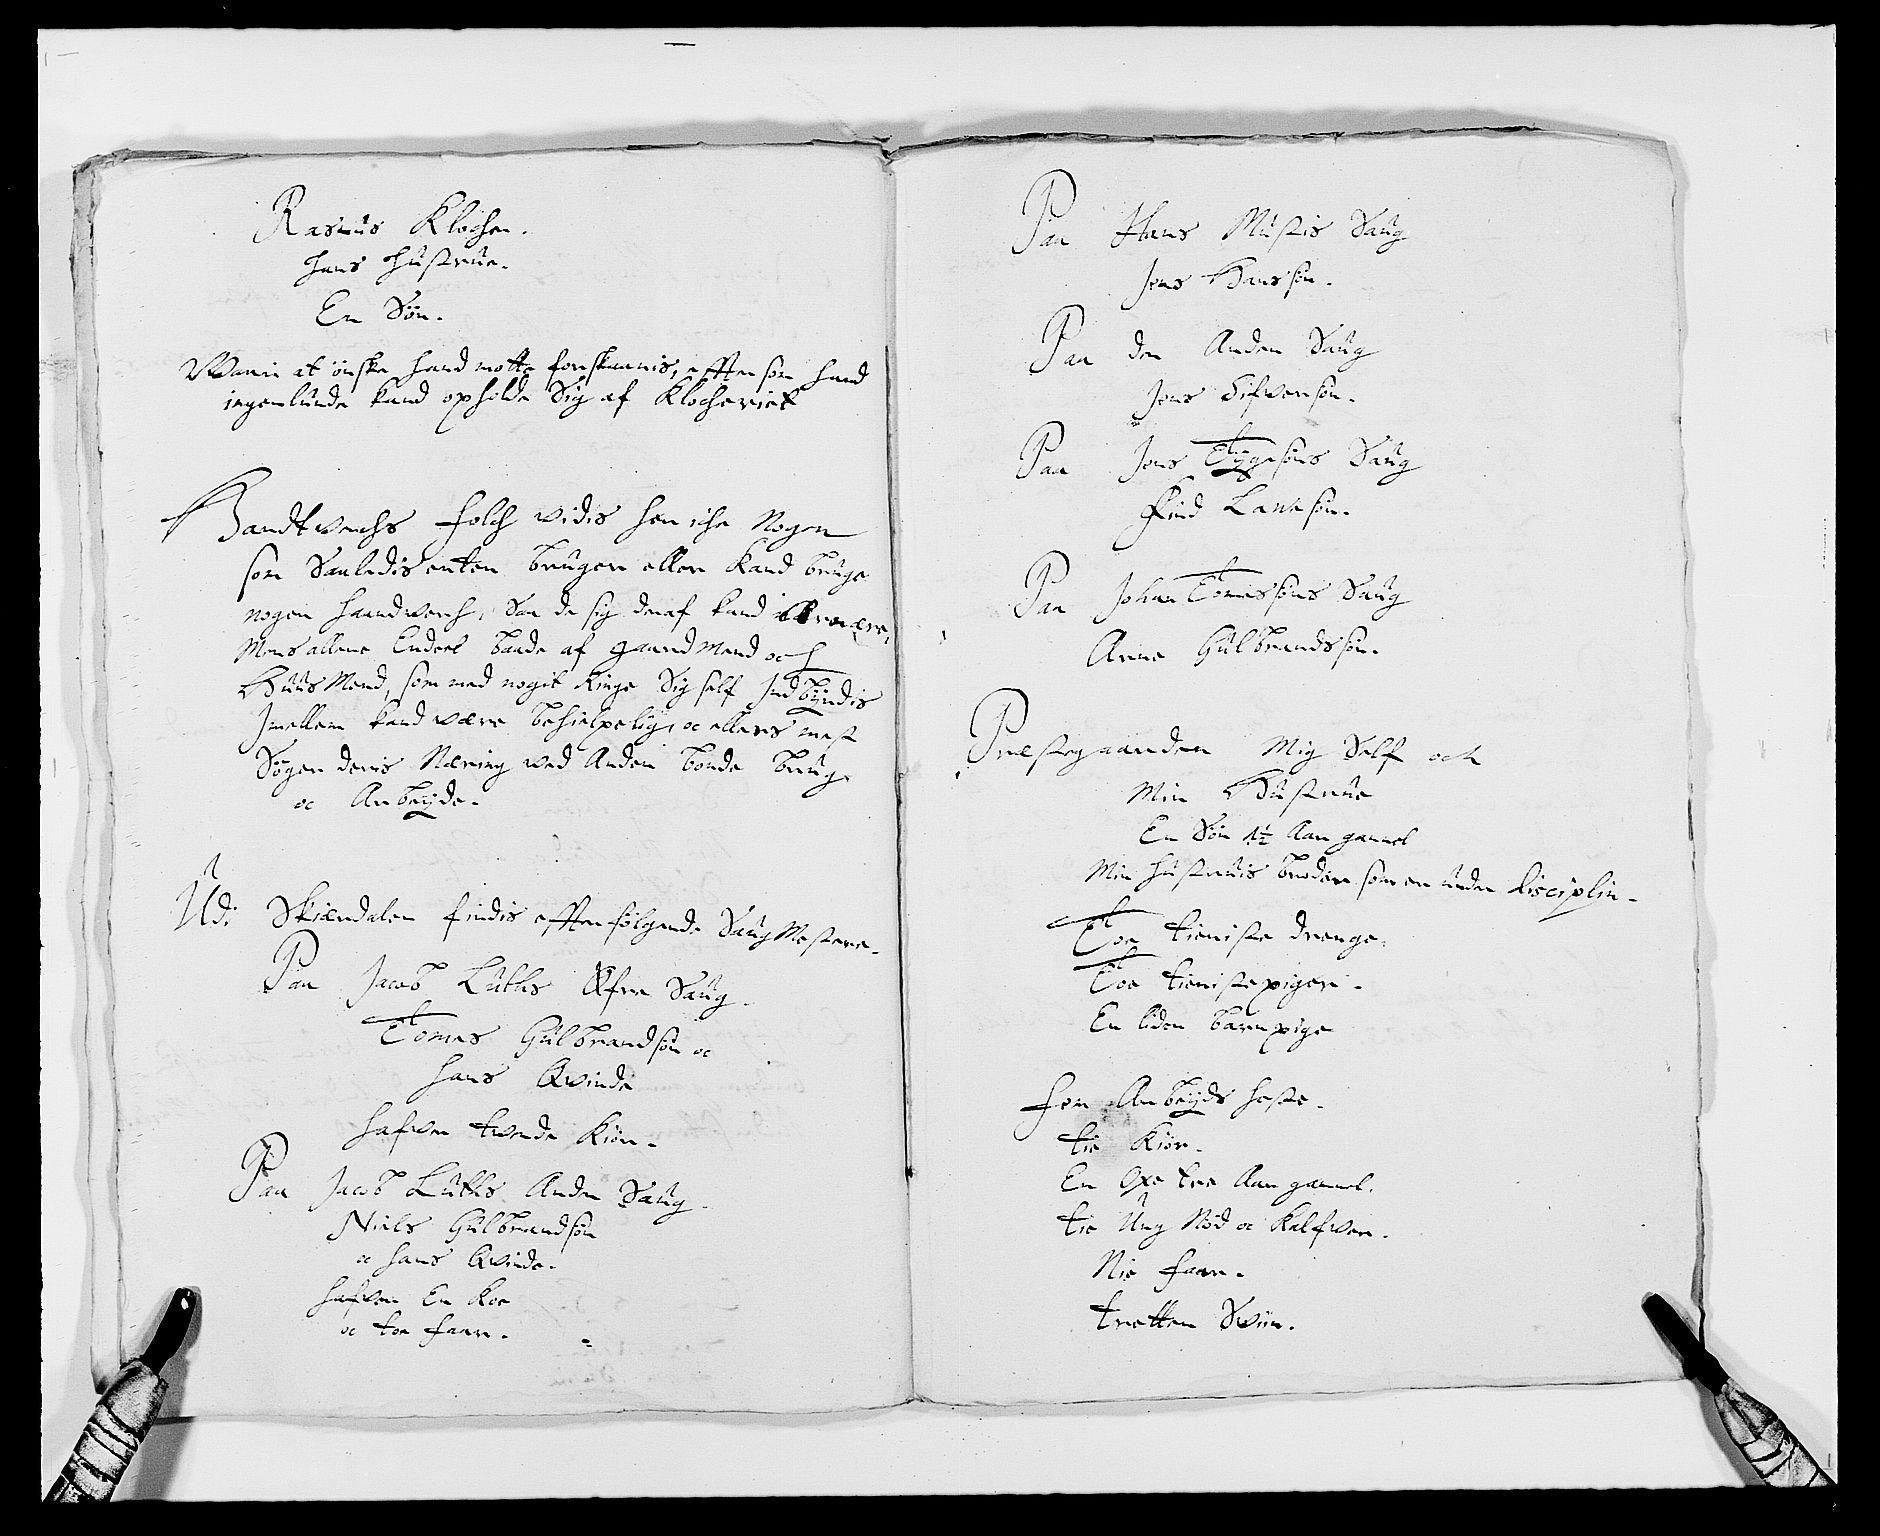 Rasmus Klocher.
hans hustrue.
En Søn.
Waare at ønske hand motte forskaanis, efftersom hand
ingenlunde kand opholde Sig af Klocheriet
Handtverchs folch vidis her iche Nogen
som Saaledis enten bruger eller kand bruge
nogen haandverch, Saa de sig deraf kand
Mens allene Endeel baade af gaardmend och
Huusmend, som med nogit Ringe Sig self Indbyrdis
Imellem kand være behielpelig, oc ellers mest
Søger deris Næring ved Anden bonde brug
oc Arbeyde.
Udi Skiærdalen findis effterfølgende Saugmestere.
Paa Jacob Luths Øfre Saug.
Tomes Gulbrandsøn oc
hans Qvinde
hafver tvende Kiør.
Paa Jacob Luths Anden Saug.
Niels Gulbrandsøn
oc hans Qvinde.
hafver En Koe
oc toe faar.
Paa Hans Mustis Saug
Jens Hanssøn.
Paa den Anden Saug
Jens Sifversøn.
Paa Jens Tygesøns Saug
Find Larssøn.
Paa Johan Tomessøns Saug
Arne Gulbrandssøn.
Præstegaarden Mig Self och
Min Hustrue
En Søn 1½ Aar gamel
Min hustruis broder som er under Disciplin.
Toe tieniste drenge.
Toe tienistepiger.
En liden barnepige
fem Arbeyds heste.
tie Kiør.
En Oxe tre Aar gamel.
tie Ung Nød oc Kalfver.
Nie faar.
tretten Sviin.